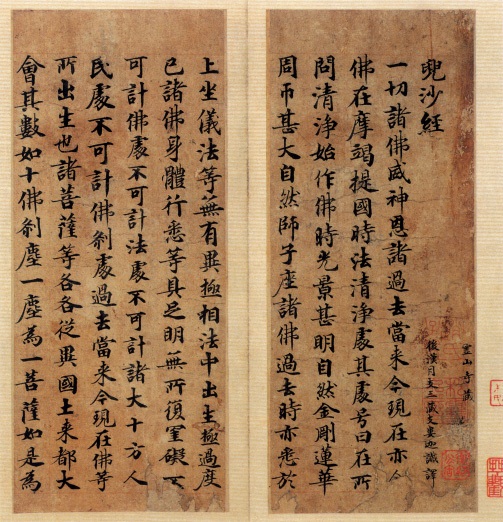 霊山寺蔵
兜沙経
後漢月支三蔵支婁迦讖譯
一切諸佛威神恩諸過去當来今現在亦尒
佛在摩竭提國時法清淨處其處号曰在所
問清淨始作佛時光景甚明自然金剛蓮華
周帀甚大自然師子座諸佛過去時亦悉於
上坐儀法等無有異極相法中出生極過度
已諸佛身體行悉等具之明無所復罣礙不
可計佛處不可計法處不可計諸大十方人
民處不可計佛剎處過去當来今現在佛等
所出生也諸菩薩等各各從異國土来都大
會其數如十佛剎塵一塵為一菩薩如是為